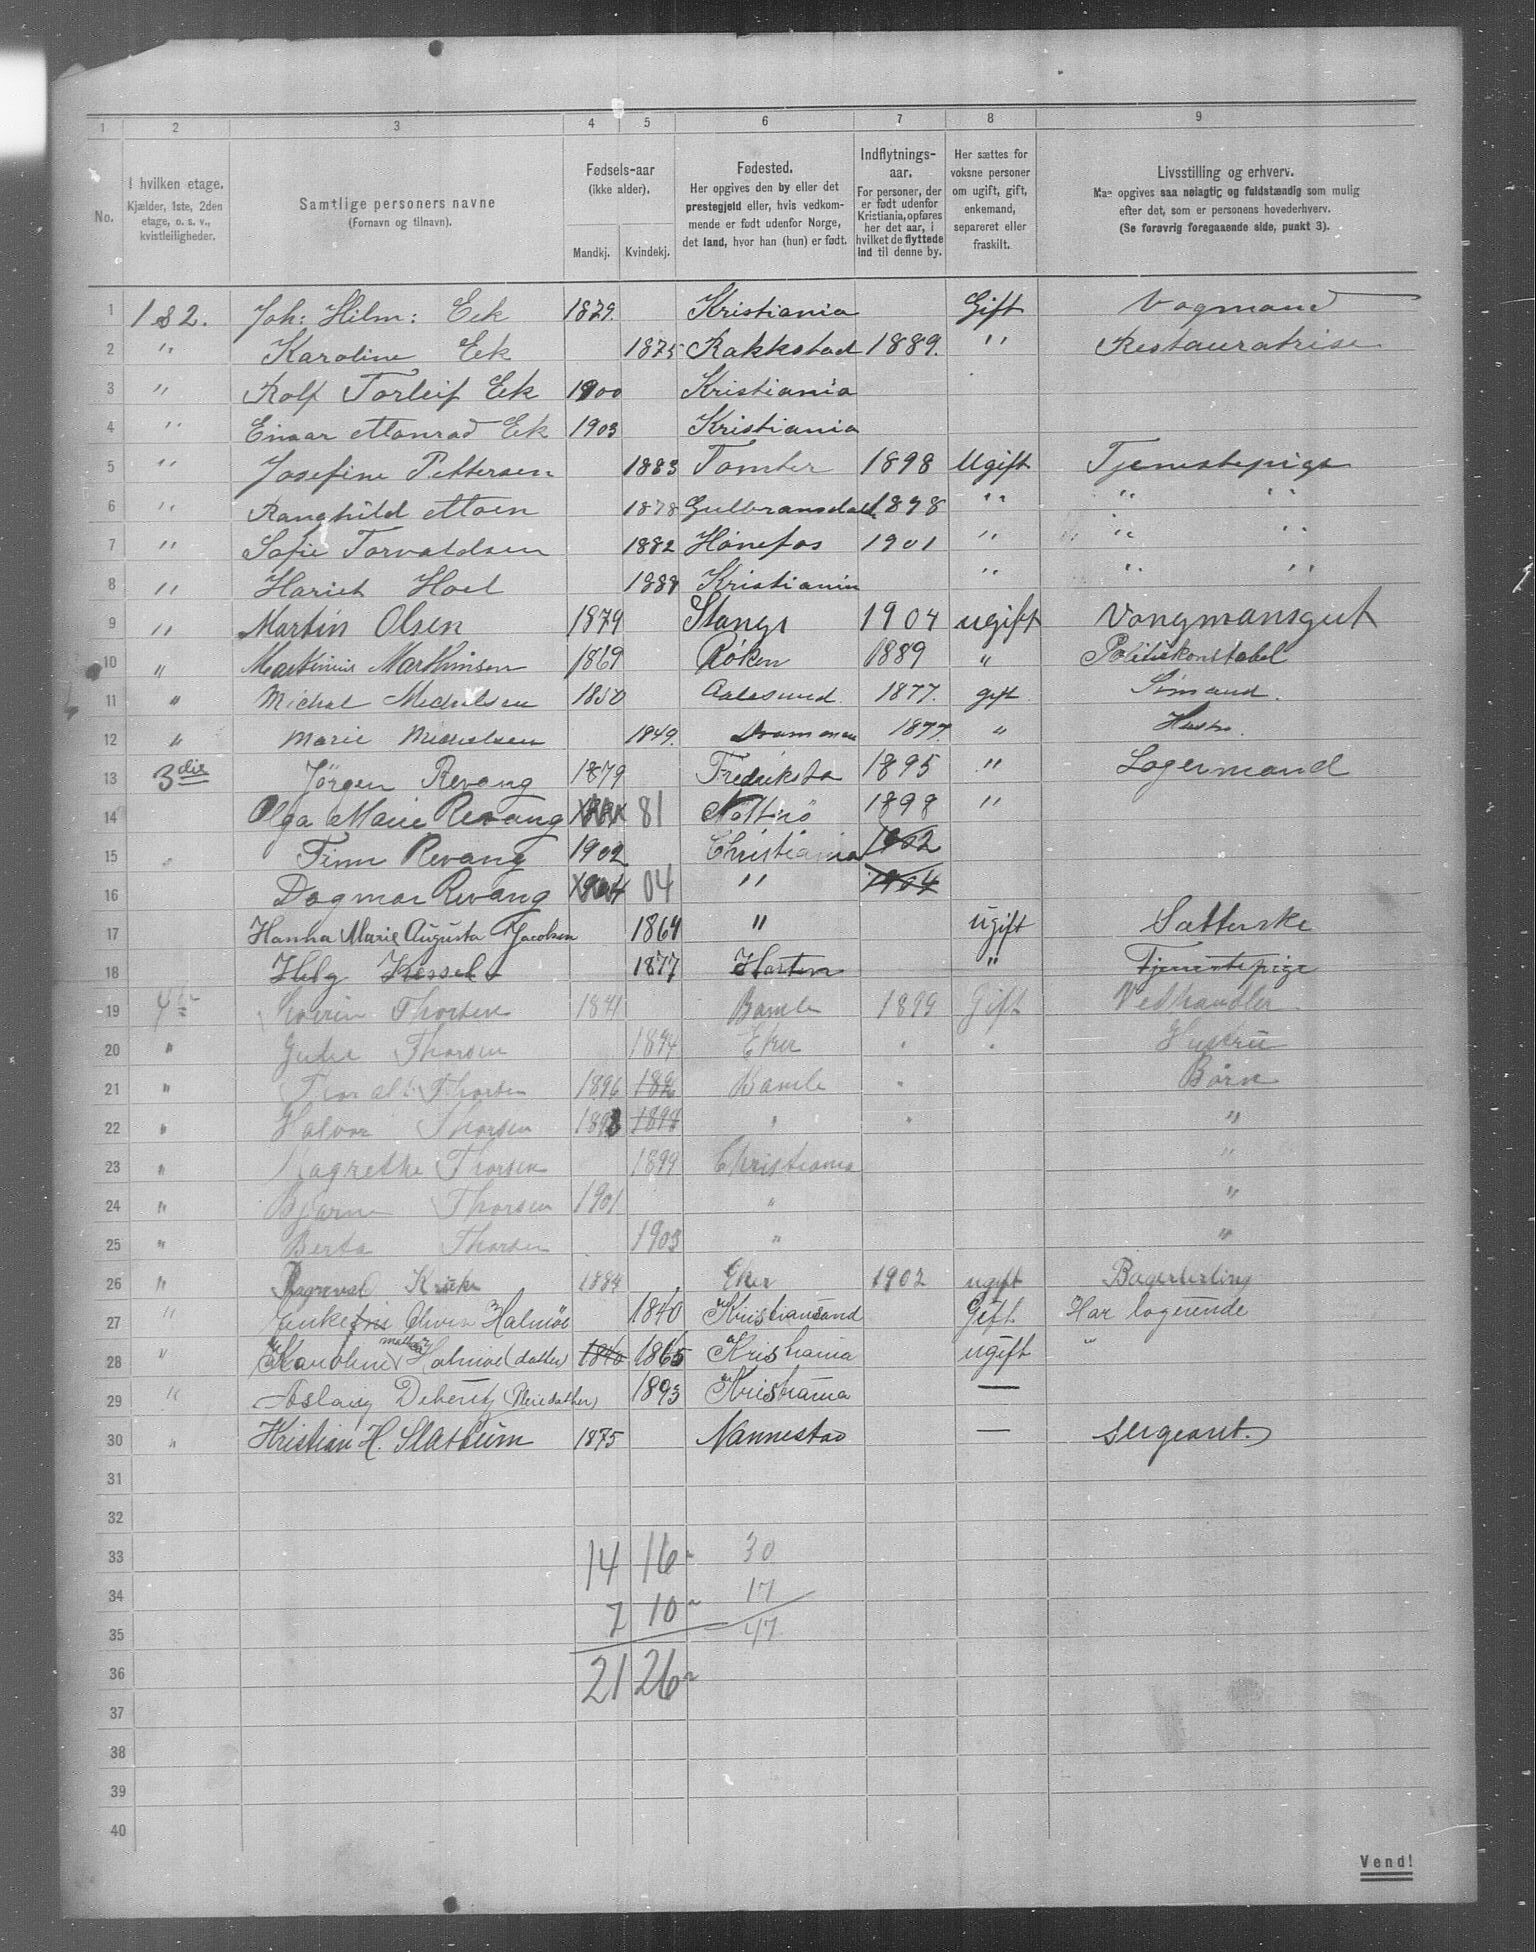 1 2 3 4 5 6 7 8 9
No.
I hvilken etage.
Kjælder, 1ste, 2den
etage, o. s. v.,
kvistleiligheder.
Samtlige personers navne
(Fornavn og tilnavn).
Fødsels-aar
(ikke alder).
Mandkj. Kvindekj.
Fødested.
Her opgives den by eller det
prestegjeld eller, hvis vedkom-
mende er født udenfor Norge,
det land, hvor han (hun) er født.
Indflytnings-
aar.
For personer, der
er født udenfor
Kristiania, opføres
her det aar, i
hvilket de flyttede
ind til denne by.
Her sættes for
voksne personer
om ugift, gift,
enkemand,
separeret eller
fraskilt.
Livsstilling og erhverv.
Man opgives saa nøiagtig og fuldstændig som mulig
efter det, som er personens hovederhverv.
(Se forøvrig foregaaende side, punkt 3).
1 1 & 2. Joh: Hilm: Eek 1879. Kristiania Gift Vogmand
2 " Karoline Eek 1875 Rakkestad 1889. " Restauratrise
3 " Rolf Torleif Eek 1900 Kristiania
4 " Einar Monrad Eek 1903 Kristiania
5 " Josefine Pettersen 1883 Tomter 1898 Ugift Tjenestepige
6 " Ranghild Moen 1878 Gulbransdal 1898 " " "
7 " Sofie Torvaldsen 1882 Hönefos 1901 " " "
8 " Hariet Hoel 1888 Kristiania " " "
9 " Martin Olsen 1879 Stange 1904 ugift Vongmansgut
10 " Martinius Marthinsen 1869 Röken 1889 " Politikonstabel
11 " Michal Michelsen 1850 Aalesund 1877. gift Sömand.
12 " Marie Michelsen 1849. Drammen 1877. " Hustr.
13 3die Jörgen Revang 1879 Fredriksta 1895 " Lagermand
14 Olga Marie Revang 81 1898 "
15 Finn Revang 1902 Christiania 1902
16 Dagmar Revang 1904 04 " 1904
17 Hanna Marie Augusta Jacobsen 1864 " ugift Sætterske
18 1877 Horten " Tjenestepige
19 4 Thorsen 1841 Bamle 1899 Gift Vedhandler
20 " Thorsen 1874 Eker " " Hustru
21 " Thorsen 1896 Bamle " Börn
22 " Halvor Thorsen 1898 " " "
23 " Magrethe Thorsen 1899 Christiania "
24 " Bjarne Thorsen 1901 " "
25 " Berta Thorsen 1903 " "
26 " 1884 Eker 1902 ugift Bagerlerling
27 " Halmöe 1840 Kristiansand Gift Har logerende
28 " Karoline Halmöe (datter) 1840 1865 Kristiania ugift "
29 " Aslaug (Pleiedatter) 1893 Kristiania —
30 " Kristian H. Slatturn 1875 Nannestad — Sergeant.
31
32
33 14 16 30
34 7 10 17
35 47
36 21 26
37
38
39
40
Vend!